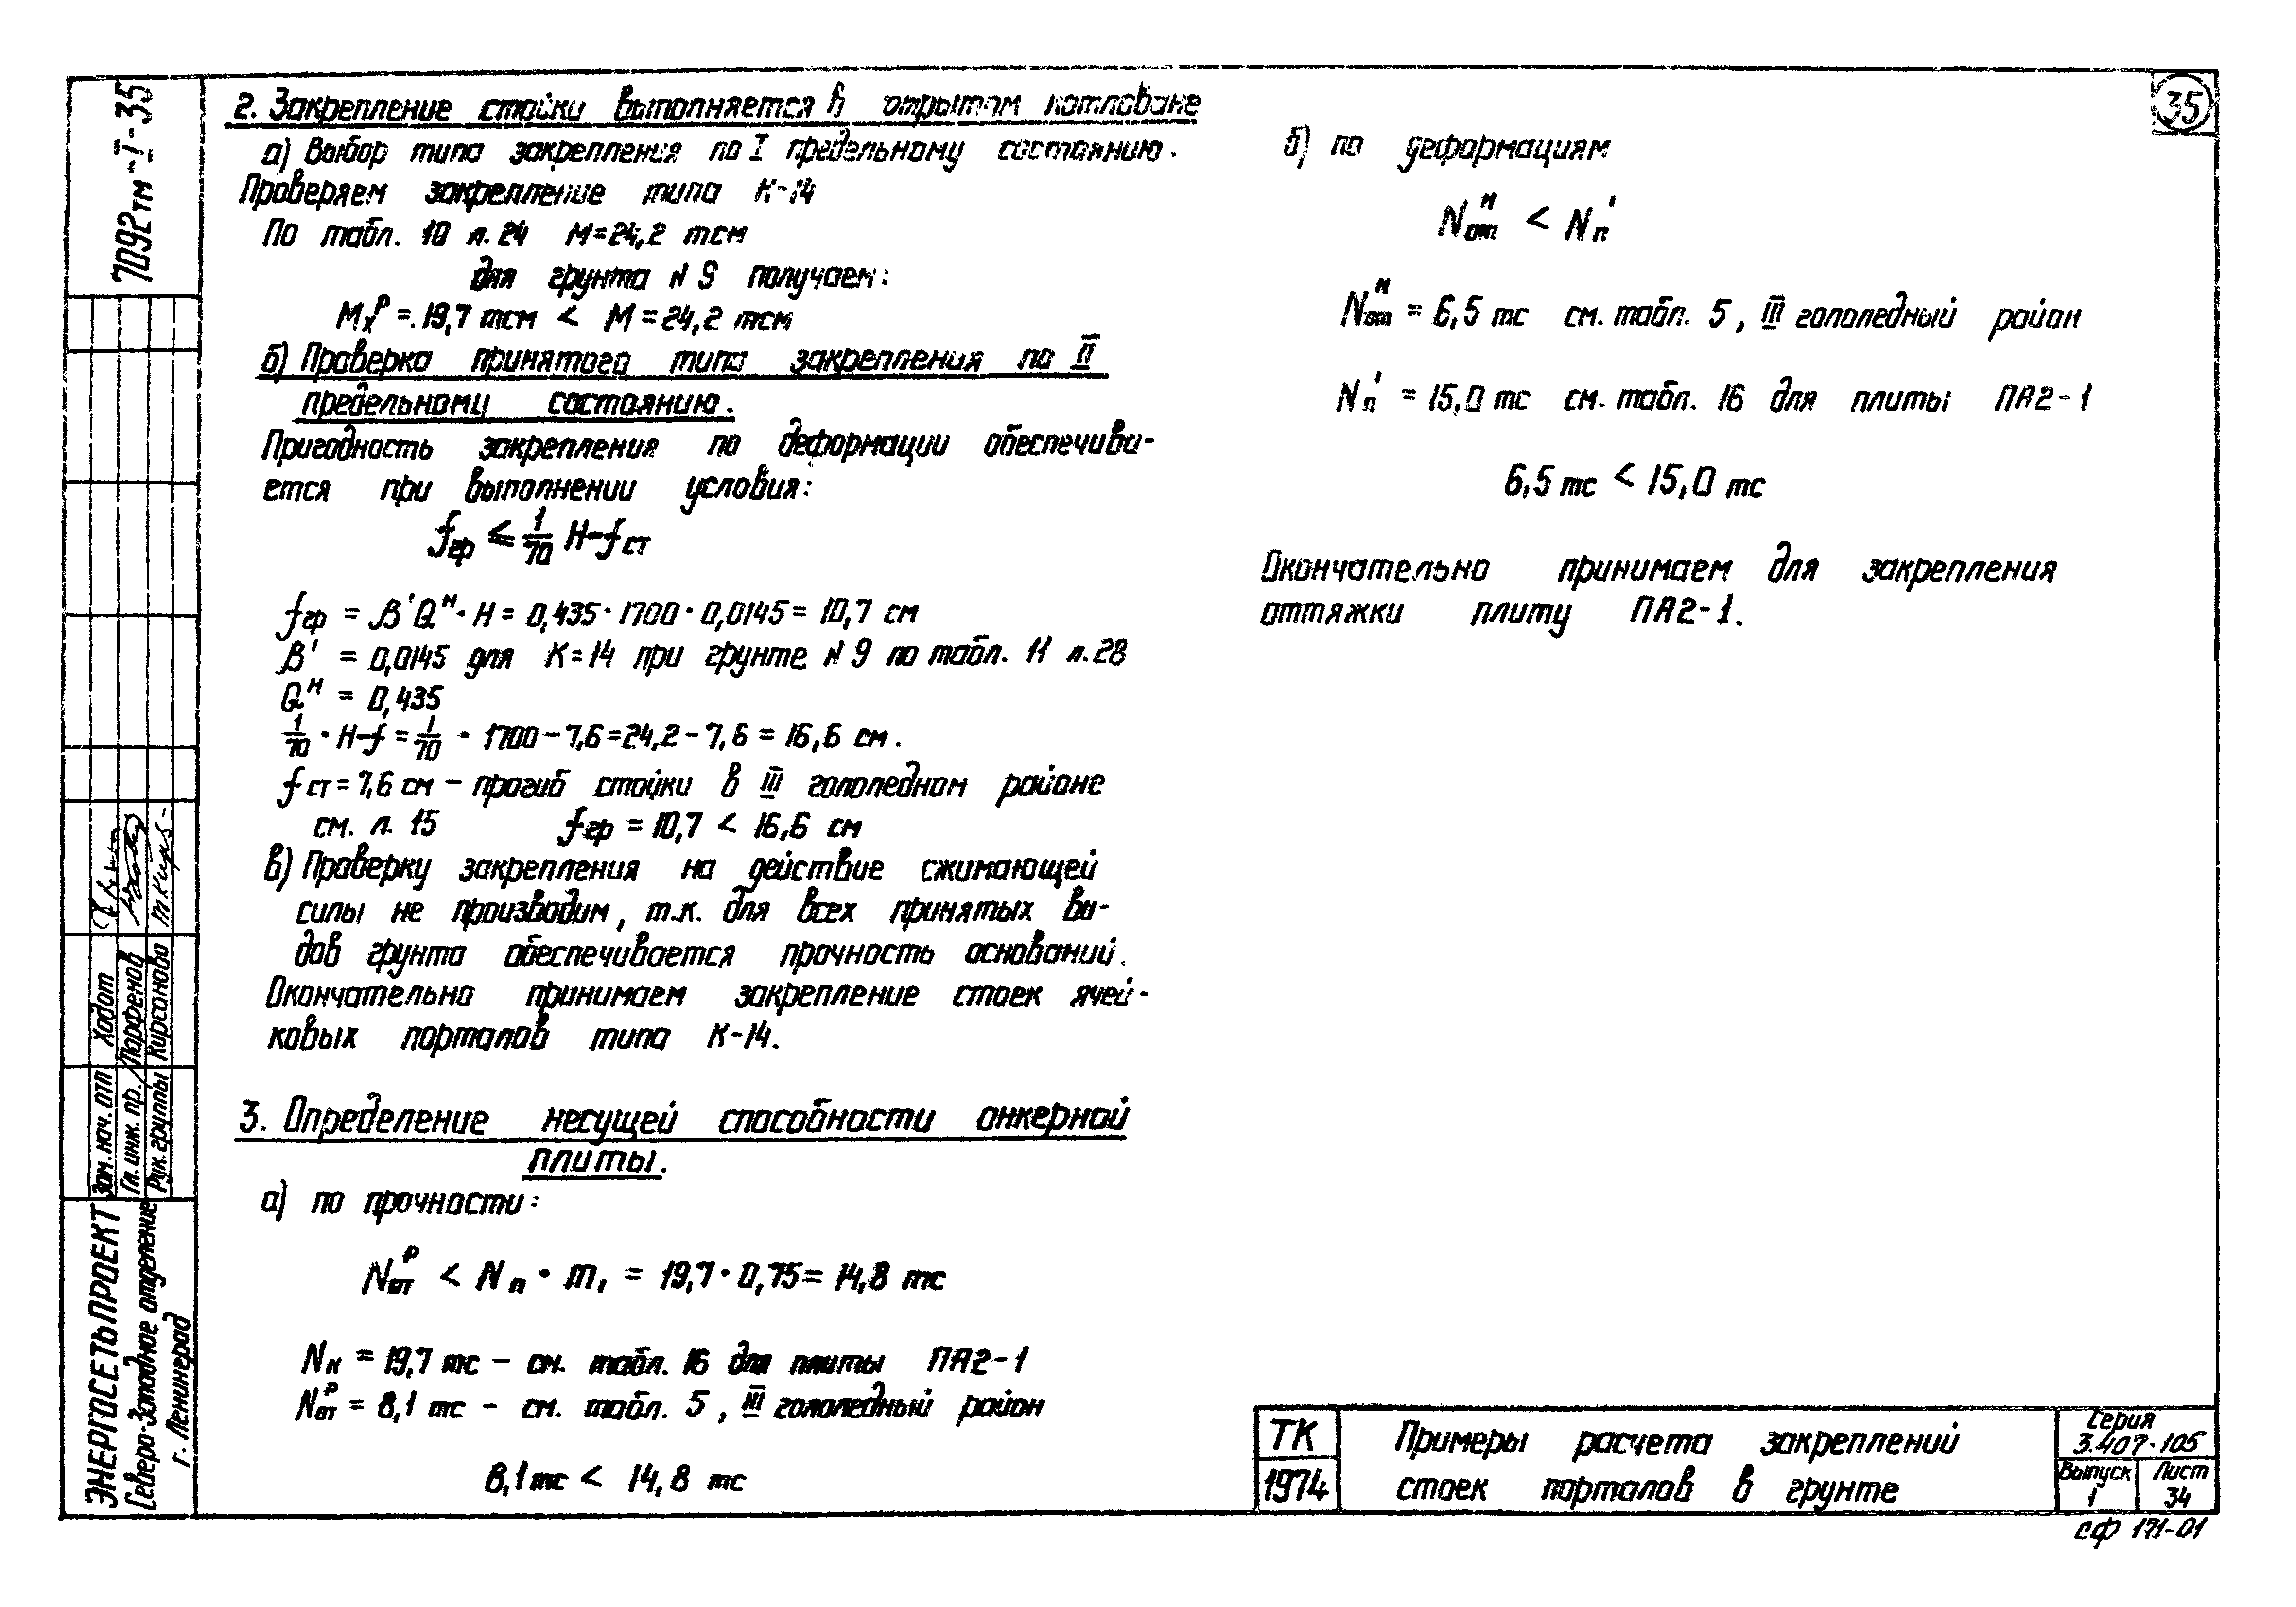 35
2. Закрепление стойки выполняется в открытом котловане
а) Выбор типа закрепления по I предельному состоянию.
Проверяем закрепление типа К-14
По табл. 10 л. 24 М=24,2 тсм
для грунта N 9 получаем:
Mxᴾ = 19,7 тсм < М = 24,2 тсм
б) Проверка принятого типа закрепления по II
предельному состоянию.
Пригодность закрепления по деформации обеспечива-
ется при выполнении условия:
fгр ≤ 1/70 H-fст
fгр = β'Qᴴ · H = 0,435 · 1700 · 0,0145 = 10,7 см
β' = 0,0145 для К=14 при грунте N 9 по табл. 11 л. 28
Qᴴ = 0,435
1/70 · H-f = 1/70 · 1700 - 7,6 = 24,2 - 7,6 = 16,6 см.
fст = 7,6 см - прогиб стойки в III гололедном районе
см. л. 15 fгр = 10,7 < 16,6 см
в) Проверку закрепления на действие сжимающей
силы не производим, т.к. для всех принятых ви-
дов грунта обеспечивается прочность оснований.
Окончательно принимаем закрепление стоек ячей-
ковых порталов типа К-14.
3. Определение несущей способности анкерной
плиты.
а) по прочности:
Nотᴾ < Nп · m₁ = 19,7 · 0,75 = 14,8 тс
Nп = 19,7 тс - см. табл. 16 для плиты ПА2-1
Nотᴾ = 8,1 тс - см. табл. 5, III гололедный район
8,1 тс < 14,8 тс
б) по деформациям
Nотᴴ < Nп'
Nотᴴ = 6,5 тс см. табл. 5, III гололедный район
Nп' = 15,0 тс см. табл. 16 для плиты ПА2-1
6,5 тс < 15,0 тс
Окончательно принимаем для закрепления
оттяжки плиту ПА2-1.
7092тм-I-35
Зам. нач. отп Ходот
Гл. инж. пр. Парфенов
Рук. группы Кирсанова
ЭНЕРГОСЕТЬПРОЕКТ
Северо-Западное отделение
г. Ленинград
ТК
1974
Примеры расчета закреплений
стоек порталов в грунте
Серия
3.407-105
Выпуск
1
Лист
34
сф 171-01